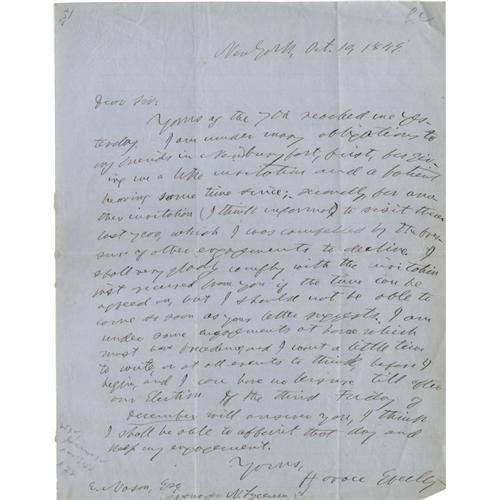 New York, Oct. 19, 1849.
Dear Sir:
Yours of the 7th reached me yes-
terday. I am under many obligations to
my friends in Newburyport, first, for giv-
ing me a like invitation and a patient
hearing some time since; secondly, for ano-
ther invitation (I think informal) to visit them
last year, which I was compelled by the pres-
sure of other engagements to decline. I
shall very gladly comply with the invitation
just received from you if the time can be
agreed on, but I should not be able to
come so soon as your letter suggests. I am
under some engagements at home which
must have precedence, and I want a little time
to write, or at all events to think, before I
begin, and I can have no leisure till after
our Election. If the third Friday of
December will answer you, I think
I shall be able to appoint that day and
keep my engagement.
Yours,
Horace Greeley
E. Mason, Esq
N. Lyceum.